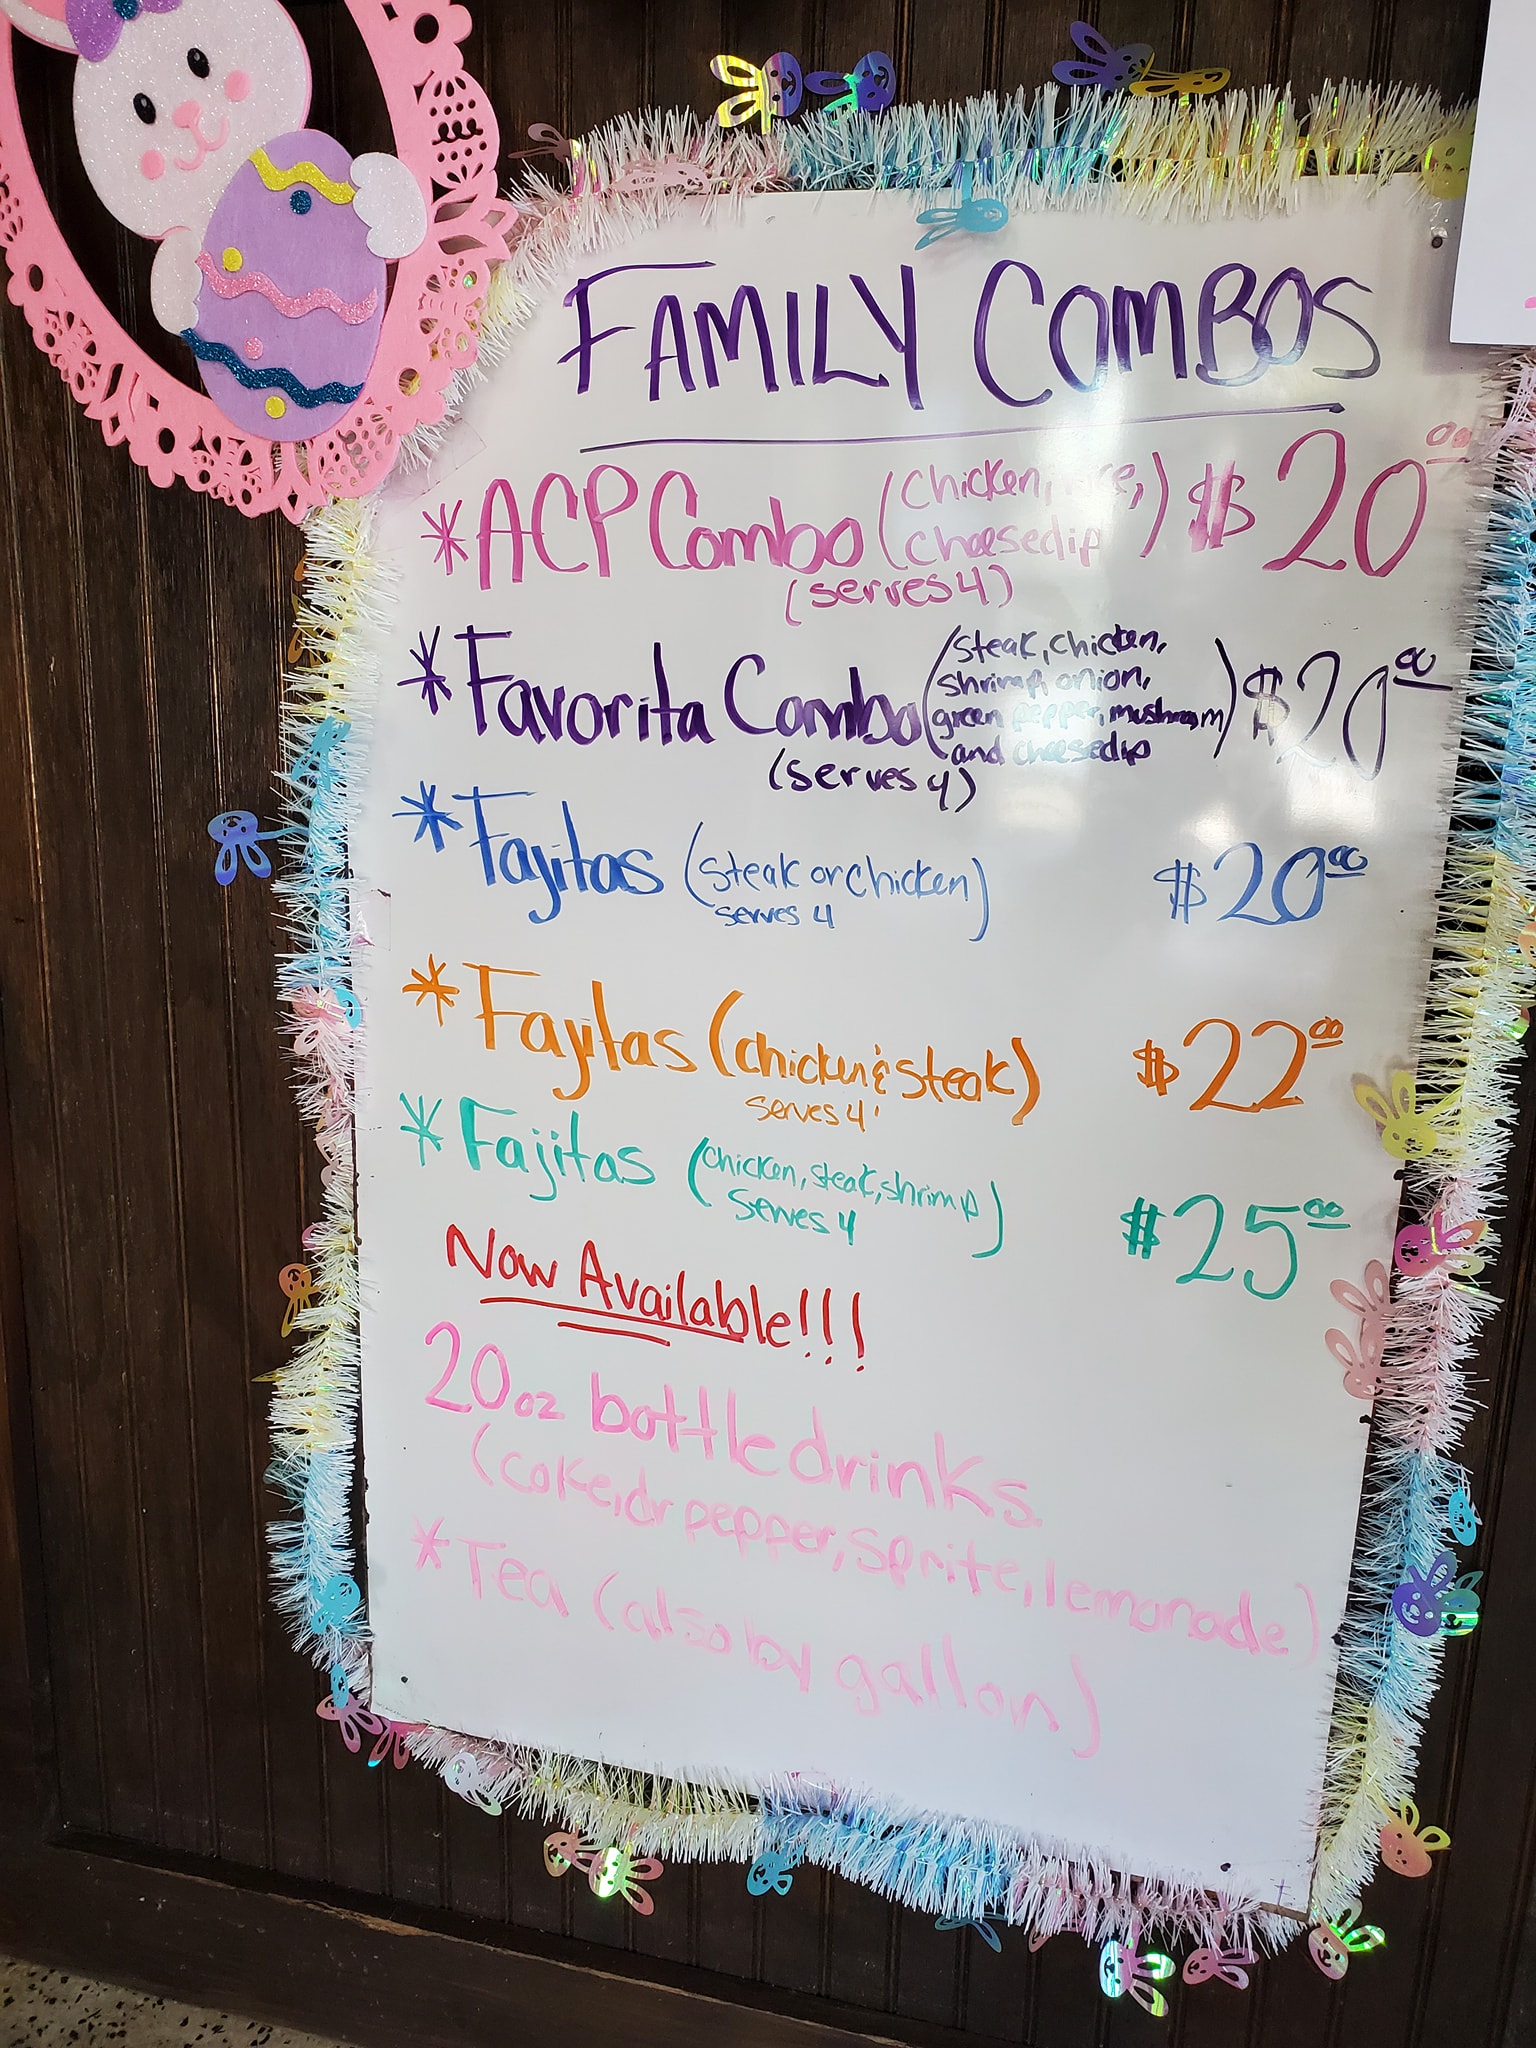 FAMILY COMBOS
*ACP Combo (chicken, rice, cheesedip) $20.00
(serves 4)
*Favorita Combo (steak, chicken, shrimp, onion, green pepper, mushroom and cheesedip) $20.00
(serves 4)
*Fajitas (steak or chicken) $20.00
serves 4
*Fajitas (chicken & steak) $22.00
serves 4
*Fajitas (chicken, steak, shrimp) $25.00
serves 4
Now Available!!!
20oz bottle drinks.
(coke, dr pepper, sprite, lemonade)
*Tea (also by gallon)